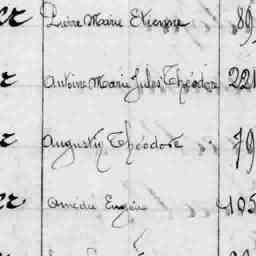 Pierre Marie Etienne 89
Antoine Marie Jules Théodore 221
Augustin Théodore 79
Amédée Eugène 105